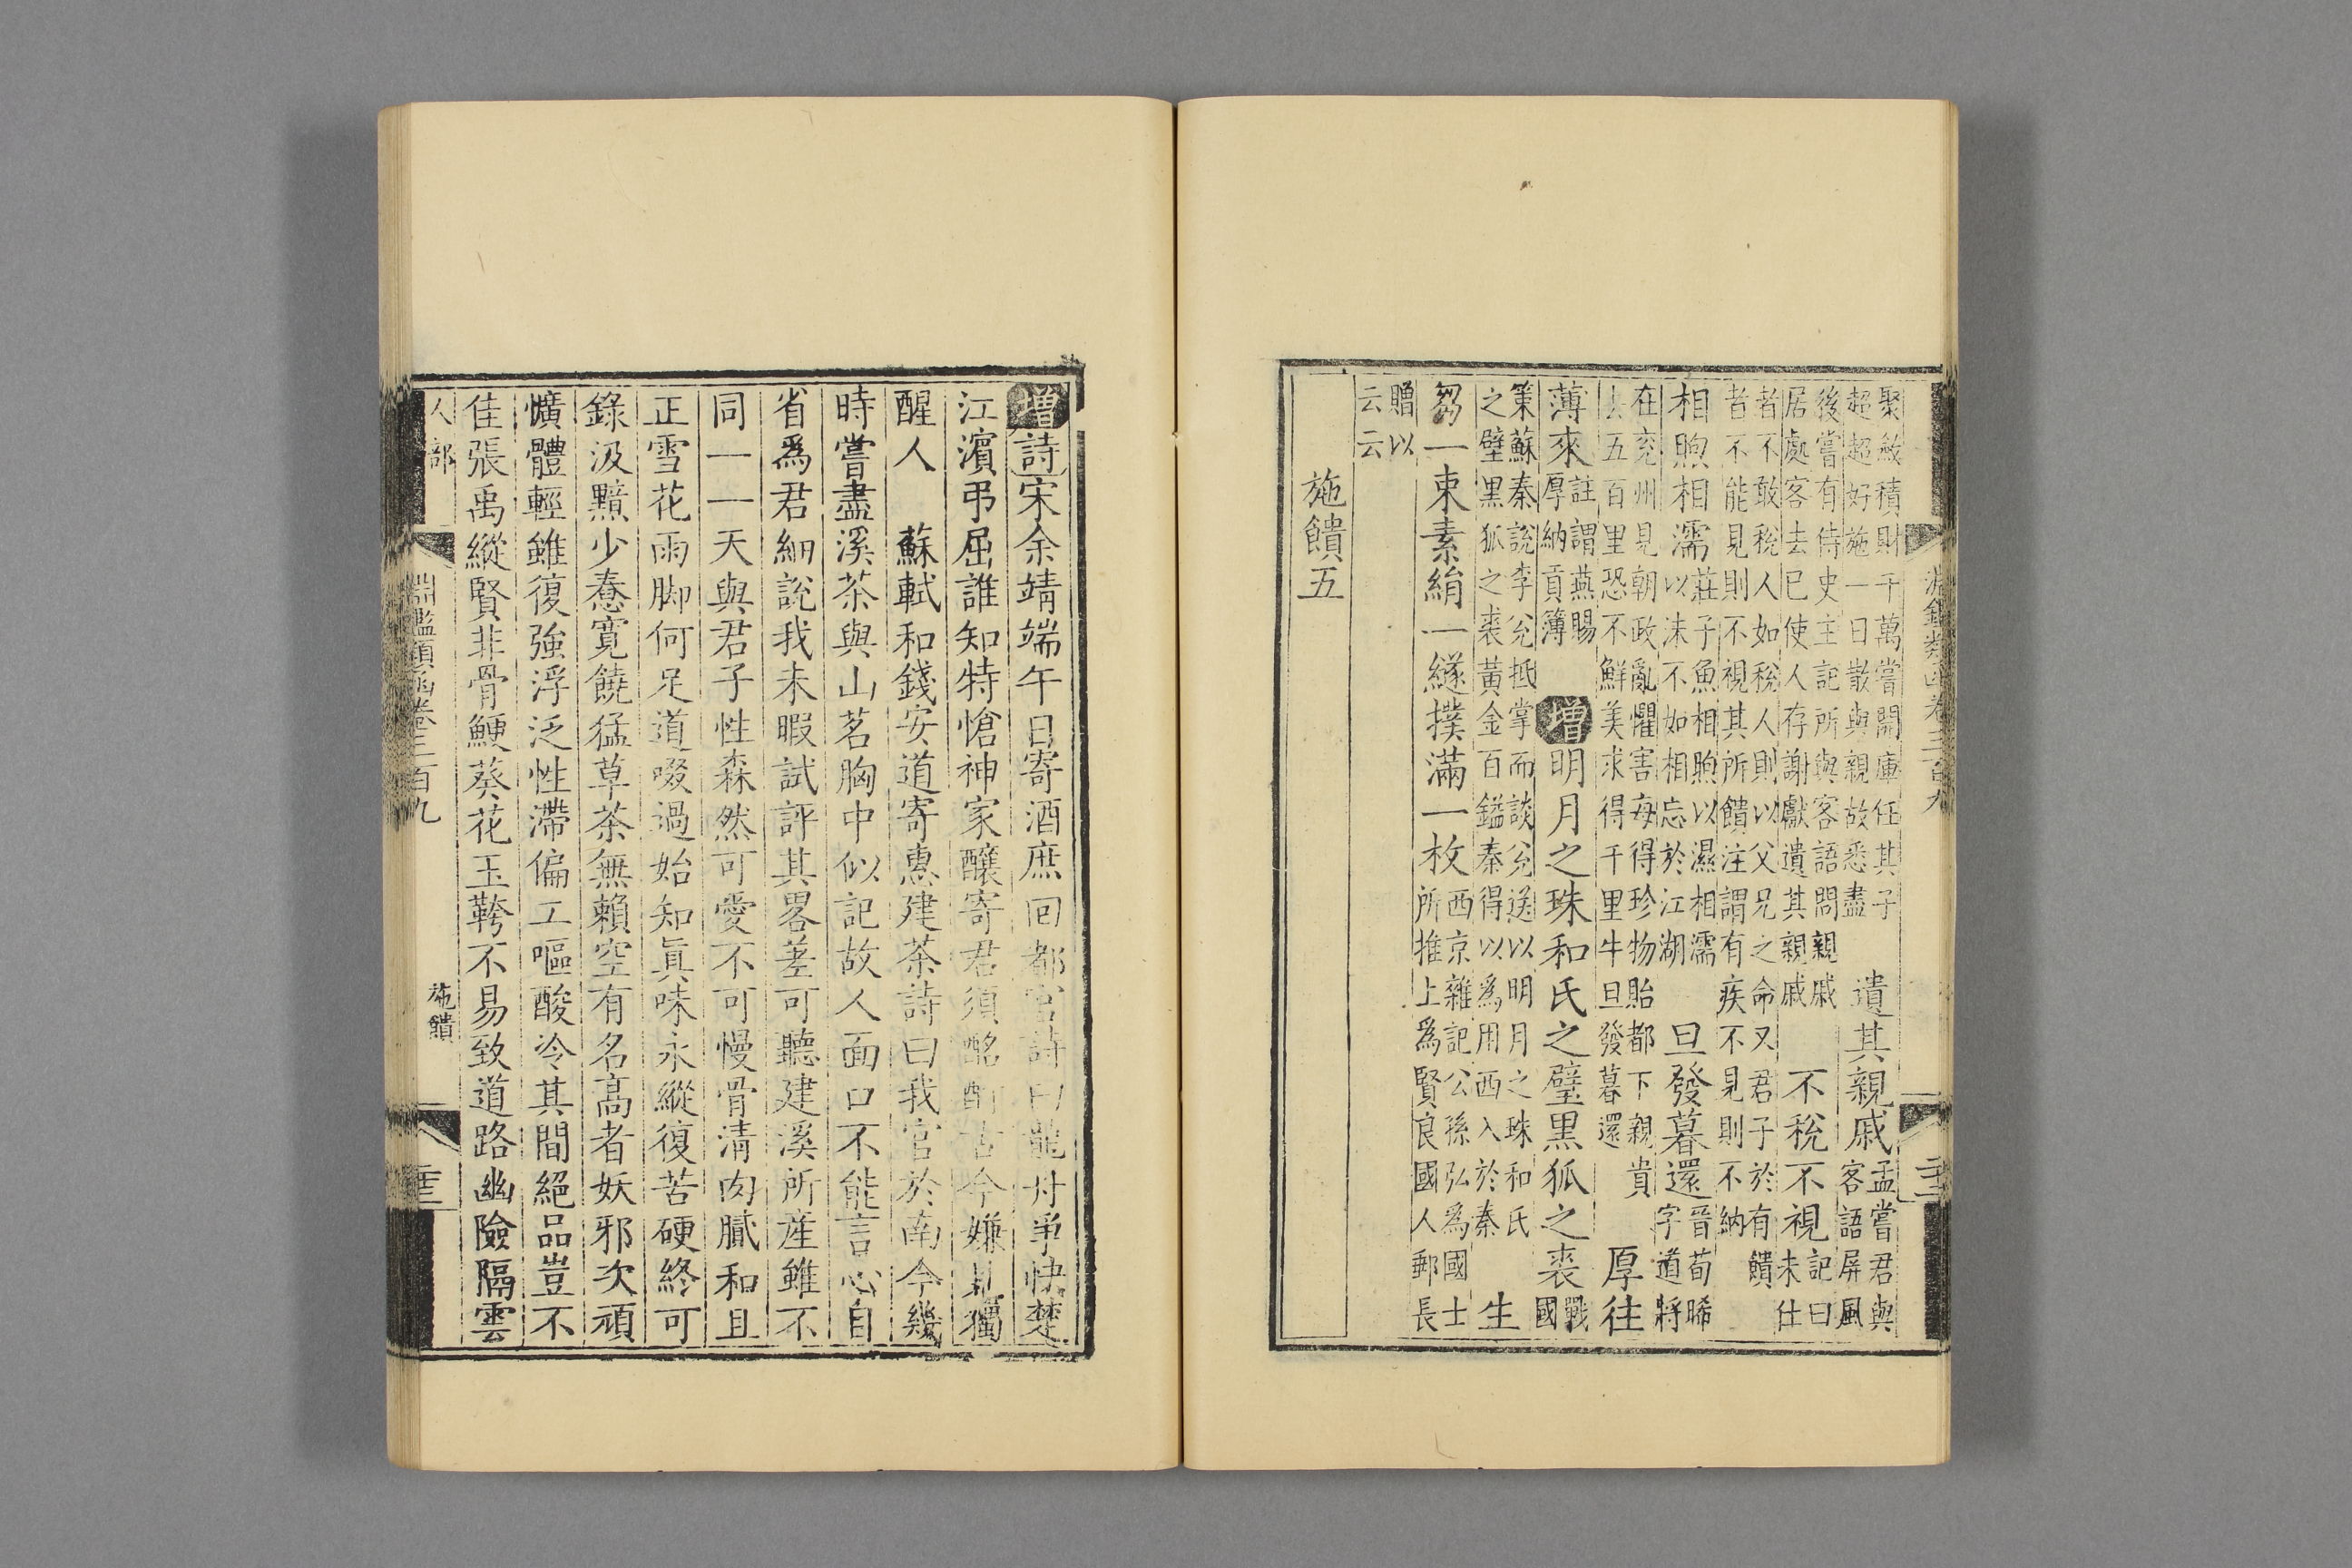 聚斂積財千萬嘗開庫任其子
超超好施一日散與親故悉盡
遺其親戚
孟嘗君與
客語屏風
後嘗有侍史主記所與客語問親戚
居處客去已使人存謝獻遺其親戚
不稅不視
記曰
未仕
者不敢稅人如稅人則以父兄之命又君子於有饋
者不能見則不視其所饋注謂有疾不見則不納
相煦相濡
莊子魚相煦以濕相濡
以沫不如相忘於江湖
旦發暮還
晉荀晞
字道將
在兖州見朝政亂懼害每得珍物貽都下親貴
去五百里恐不鮮美求得千里牛旦發暮還
厚往
薄來
註謂燕賜
厚納貢薄
增明月之珠和氏之璧黑狐之裘
戰
國
策蘇秦說李兊抵掌而談兊送以明月之珠和氏
之璧黑狐之裘黃金百鎰秦得以爲用西入於秦
生
芻一束素絹一繸撲滿一枚
西京雜記公孫弘爲國士
所推上爲賢良國人鄒長
贈以
云云
施饋五
淵鑑類函卷三百九
增詩宋余靖端午日寄酒庶回都官詩曰龍舟爭快楚
江濱弔屈誰知特愴神家釀寄君須酩酊古今嫌見獨
醒人　蘇軾和錢安道寄惠建茶詩曰我官於南今幾
時嘗盡溪茶與山茗胸中似記故人面口不能言心自
省爲君細說我未暇試評其畧差可聽建溪所產雖不
同一一天與君子性森然可愛不可慢骨清肉膩和且
正雪花雨脚何足道啜過始知眞味永縱復苦硬終可
錄汲黯少戇寬饒猛草茶無賴空有名高者妖邪次頑
懭體輕雖復強浮泛性滯偏工嘔酸冷其間絕品豈不
佳張禹縱賢非骨鯁葵花玉䩞不易致道路幽險隔雲
人部
淵鑑類函卷三百九
施饋